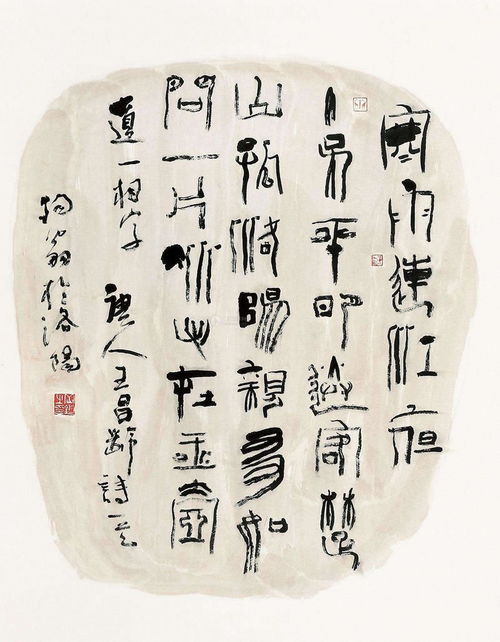 寒雨連江夜
入吳平明送客楚
山孤洛陽親友如
問一片冰心在玉壺
遺一相字 唐人王昌齡詩一首
翁於洛陽